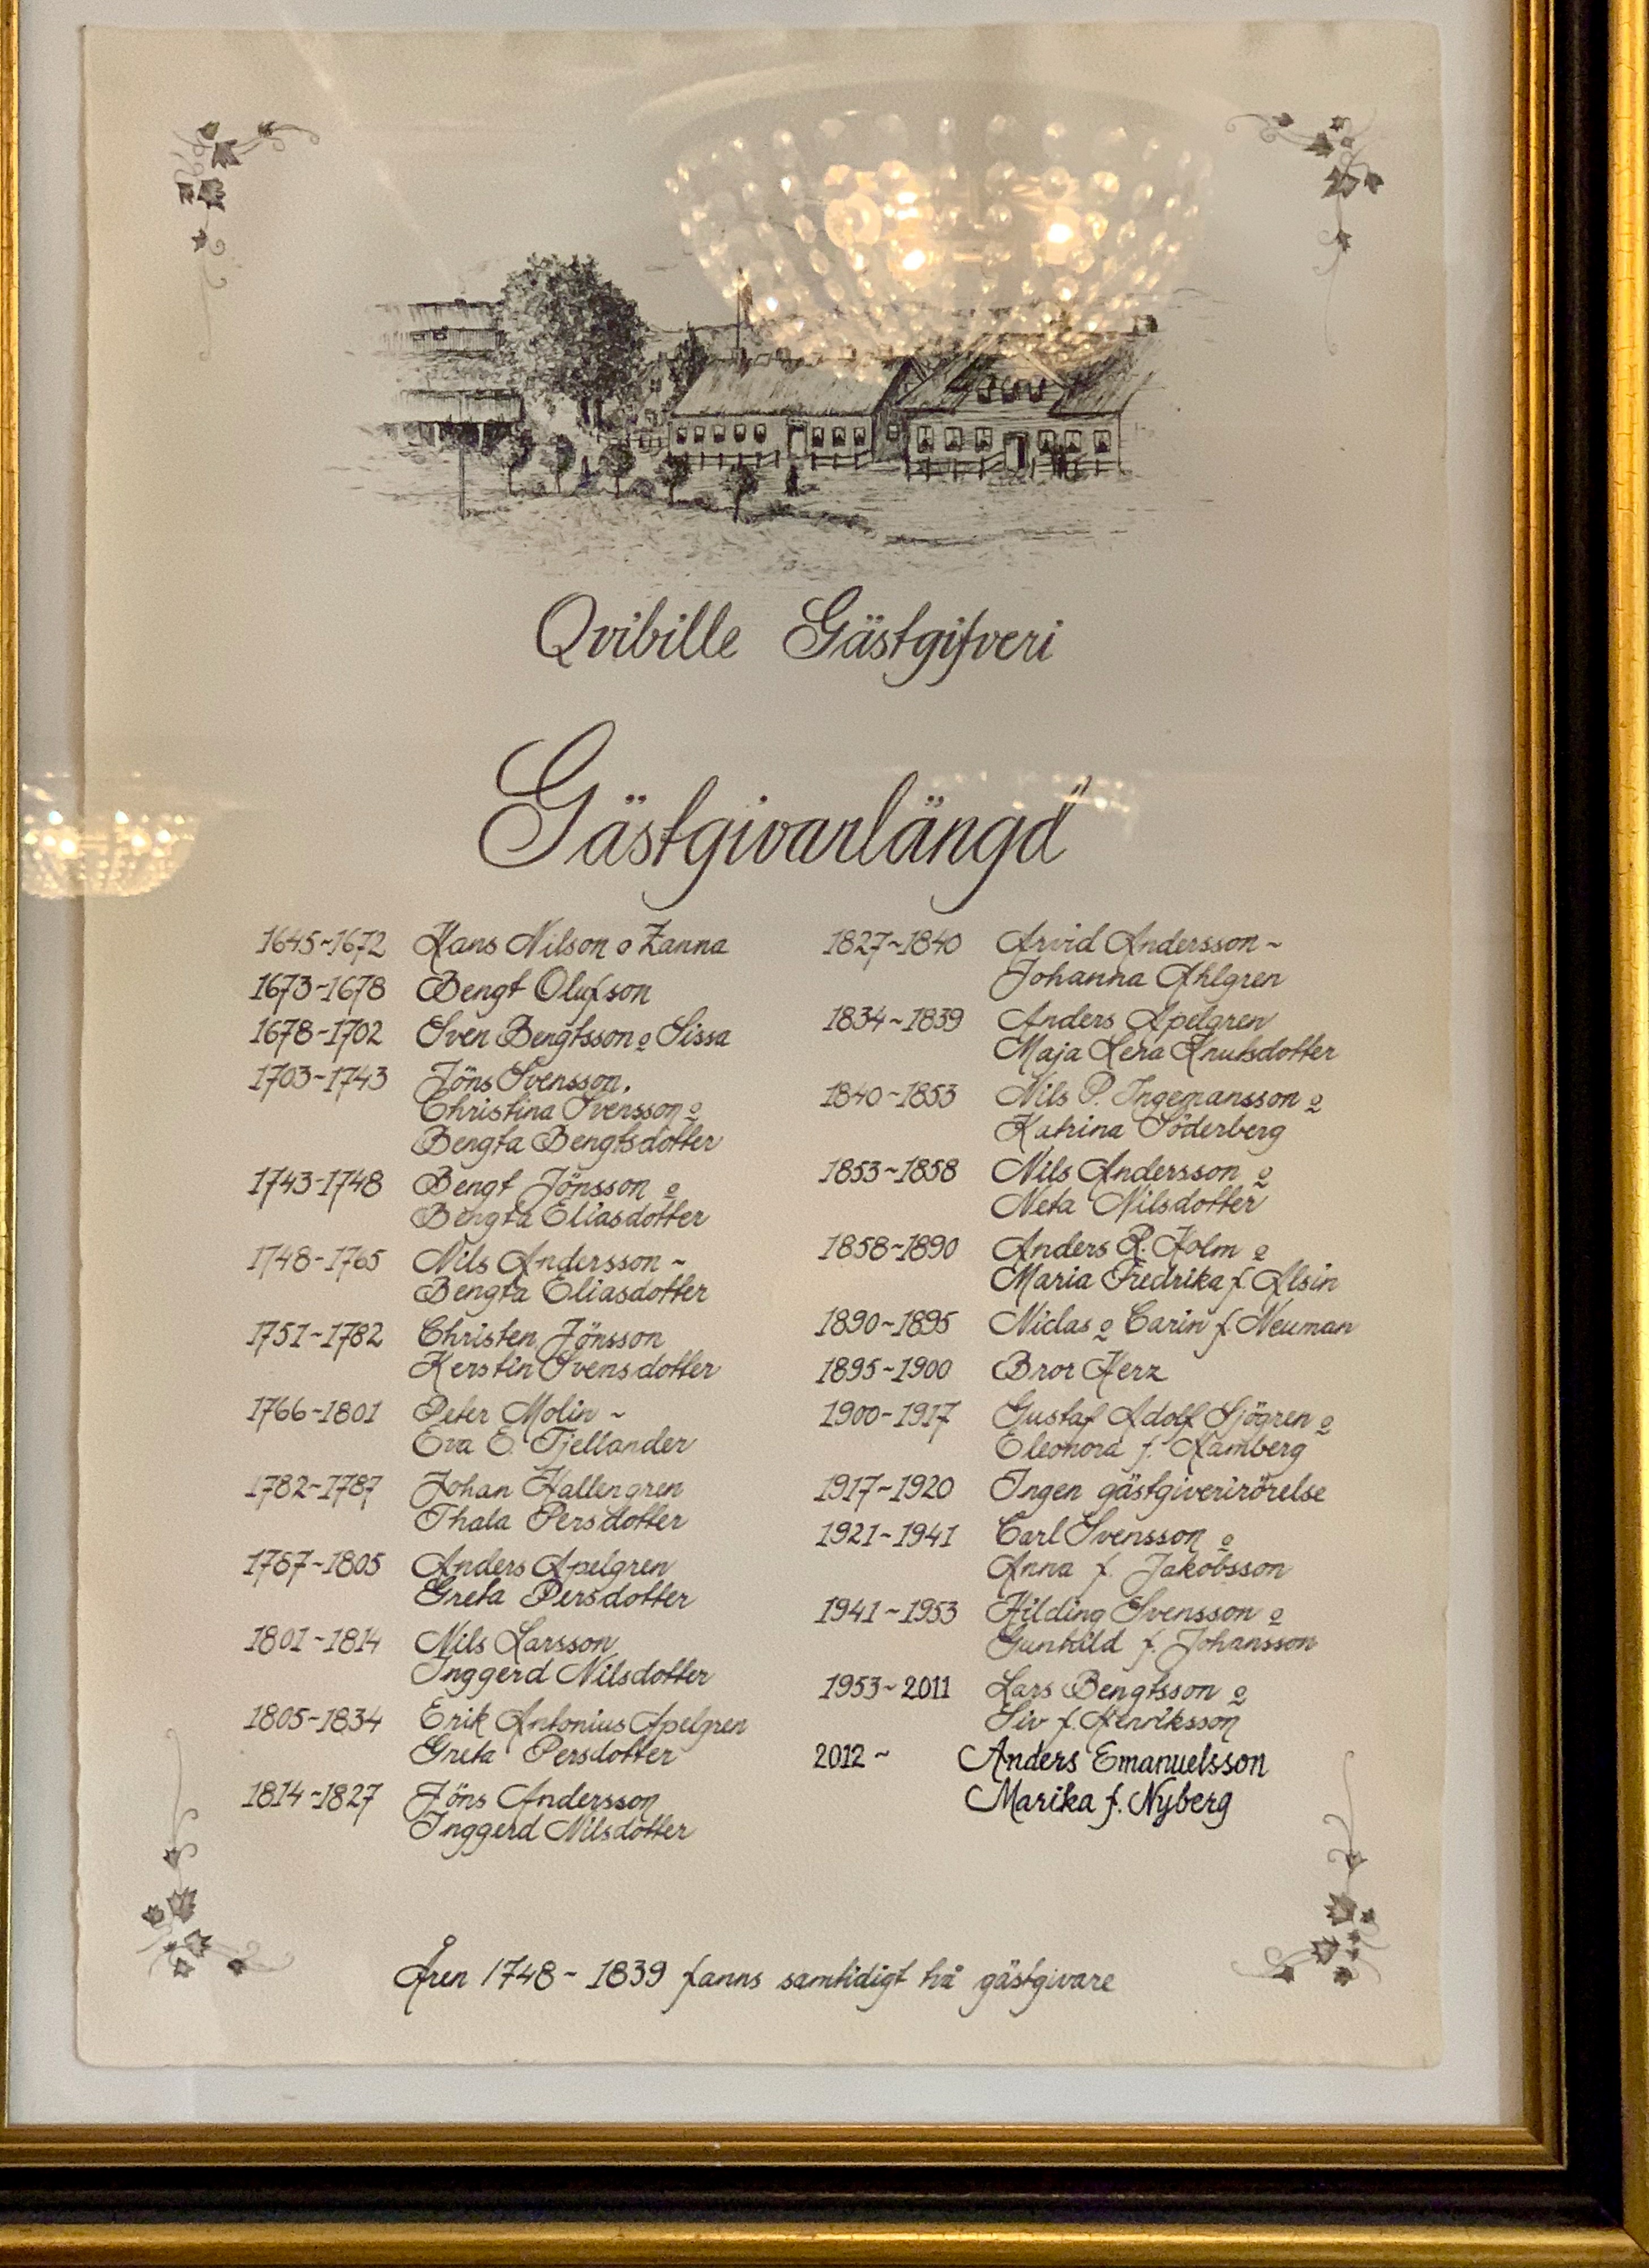 Qvibille Gästgifveri
Gästgivarlängd
1645~1672 Hans Nilson o Zanna
1673-1678 Bengt Olufson
1678-1702 Sven Bengtsson o Sissa
1703-1743 Jöns Svensson,
Christina Svensson o
Bengta Bengtsdotter
1743-1748 Bengt Jönsson o
Bengta Eliasdotter
1748-1765 Nils Andersson ~
Bengta Eliasdotter
1751-1782 Christen Jönsson
Kerstin Svensdotter
1766-1801 Peter Molin ~
Eva E. Tjellander
1782-1787 Johan Hallengren
Thala Persdotter
1787-1805 Anders Apelgren
Greta Persdotter
1801-1814 Nils Larsson
Inggerd Nilsdotter
1805-1834 Erik Antonius Apelgren
Greta Persdotter
1814-1827 Jöns Andersson
Inggerd Nilsdotter
1827~1840 Arvid Andersson ~
Johanna Ahlgren
1834~1839 Anders Apelgren
Maja Lena Knutsdotter
1840~1853 Nils P. Ingemansson o
Katrina Söderberg
1853~1858 Nils Andersson o
Neta Nilsdotter
1858~1890 Anders R. Holm o
Maria Fredrika f. Alsin
1890~1895 Niclas o Carin f. Neuman
1895~1900 Bror Herz
1900-1917 Gustaf Adolf Sjögren o
Eleonora f. Hamberg
1917~1920 Ingen gästgiverirörelse
1921~1941 Carl Svensson o
Anna f. Jakobsson
1941~1953 Hilding Svensson o
Gunhild f. Johansson
1953~2011 Lars Bengtsson o
Siv f. Henriksson
2012 ~ Anders Emanuelsson
Marika f. Nyberg
Åren 1748 ~ 1839 fanns samtidigt två gästgivare